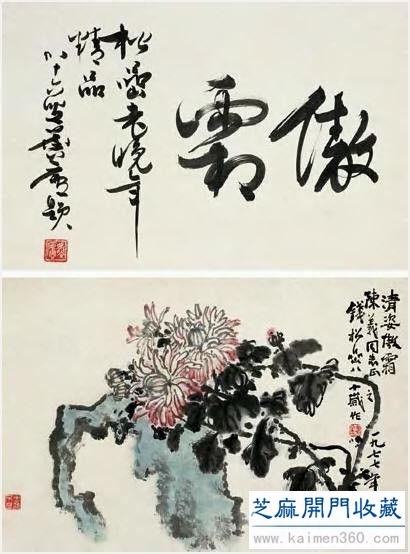 傲霜
松喦老晚年
精品
題
清姿傲霜
陳義同志正之
錢松喦八十歲作
一九七七年
芝麻開門收藏
www.kaimen360.com